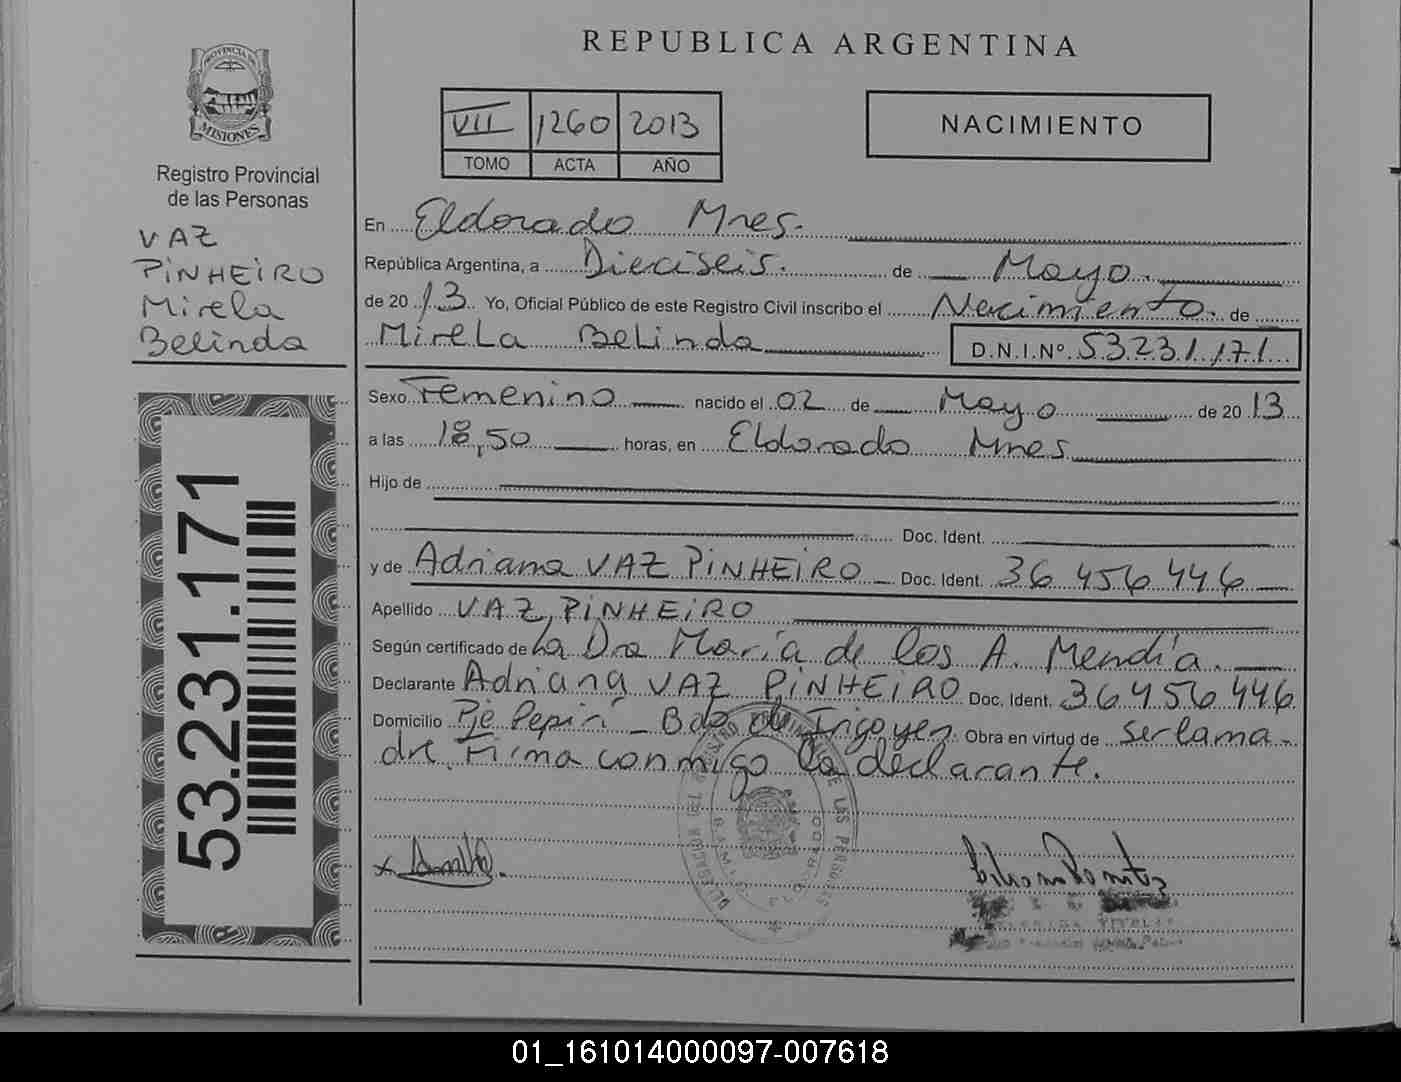 REPUBLICA ARGENTINA
PROVINCIA DE
MISIONES
Registro Provincial
de las Personas
VAZ
PINHEIRO
Mirela
Belinda
53.231.171
VII 1260 2013
TOMO ACTA AÑO
NACIMIENTO
En Eldorado Mnes.
República Argentina, a Dieciseis. de Mayo.
de 2013. Yo, Oficial Público de este Registro Civil inscribo el Nacimiento. de
Mirela Belinda D.N.I.Nº. 53.231.171
Sexo Femenino nacido el 02 de Mayo de 2013
a las 18,50 horas, en Eldorado Mnes
Hijo de
Doc. Ident.
y de Adriana VAZ PINHEIRO Doc. Ident. 36 456 446
Apellido VAZ PINHEIRO
Según certificado de La Dra María de los A. Mendía.
Declarante Adriana VAZ PINHEIRO Doc. Ident. 36456446
Domicilio Pje Pepirí - Bdo de Irigoyen. Obra en virtud de ser la ma-
dre. Firma conmigo la declarante.
DELEGACION DEL REGISTRO PROVINCIAL DE LAS PERSONAS
ELDORADO
01_161014000097-007618